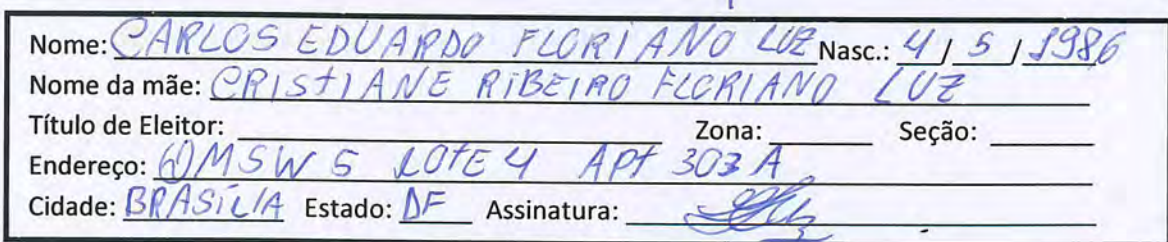 Nome: CARLOS EDUARDO FLORIANO LUZ Nasc.: 4 / 5 / 1986
Nome da mãe: CRISTIANE RIBEIRO FLORIANO LUZ
Título de Eleitor: Zona: Seção:
Endereço: QMSW 5 LOTE 4 APt 303 A
Cidade: BRASÍLIA Estado: DF Assinatura: